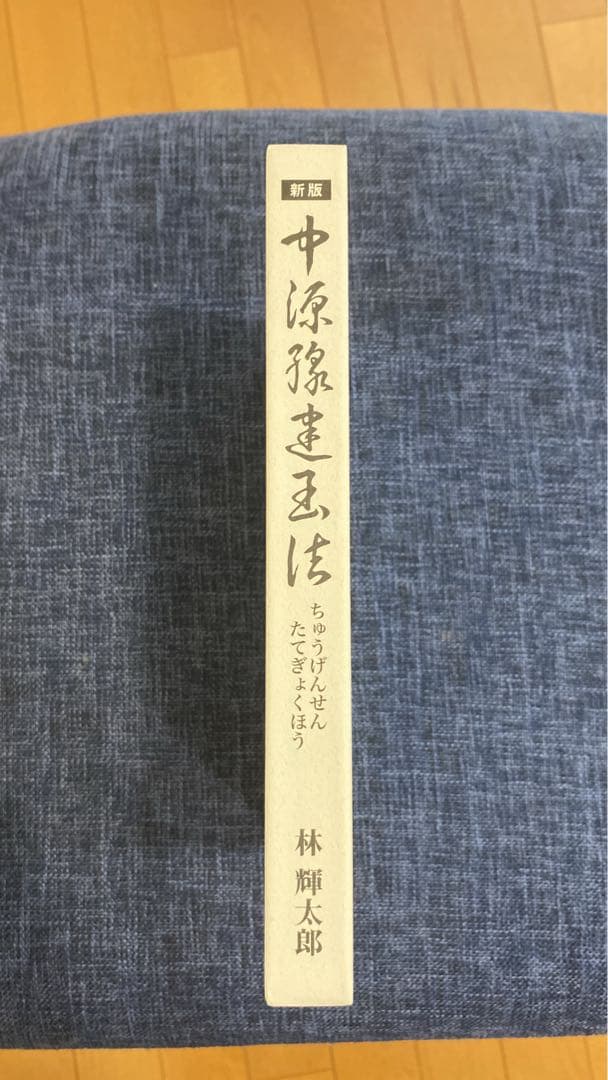 新版
中源線建玉法
ちゅうげんせん
たてぎょくほう
林 輝太郎